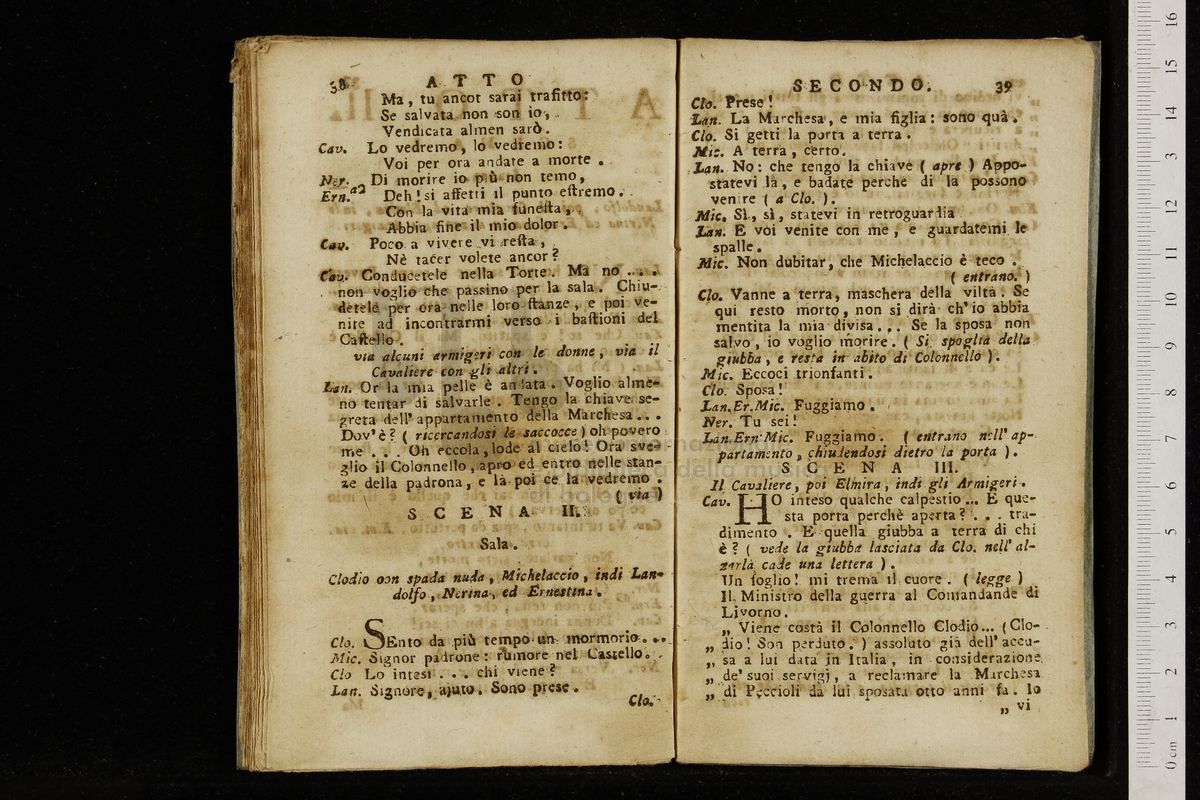 38 ATTO
Ma, tu ancor sarai trafitto:
Se salvata non son io,
Vendicata almen sarò.
Cav. Lo vedremo, lo vedremo:
Voi per ora andate a morte.
Ner. Di morire io più non temo,
Ern. a2 Deh! si affetti il punto estremo.
Con la vita mia funesta,
Abbia fine il mio dolor.
Cav. Poco a vivere vi resta,
Nè tacer volete ancor?
Cav. Conducetele nella Torre. Ma no ....
non voglio che passino per la sala. Chiu-
detele per ora nelle loro stanze, e poi ve-
nite ad incontrarmi verso i bastioni del
Castello.
via alcuni armigeri con le donne, via il
Cavaliere con gli altri.
Lan. Or la mia pelle è andata. Voglio alme-
no tentar di salvarle. Tengo la chiave se-
greta dell' appartamento della Marchesa...
Dov'è? ( ricercandosi le saccocce ) oh povero
me ... Oh eccola, lode al cielo! Ora sve-
glio il Colonnello, apro ed entro nelle stan-
ze della padrona, e là poi ce la vedremo.
( via )
SCENA II.
Sala.
Clodio con spada nuda, Michelaccio, indi Lan-
dolfo, Nerina, ed Ernestina.
Clo. SEnto da più tempo un mormorio...
Mic. Signor padrone: rumore nel Castello.
Clo Lo intesi ... chi viene?
Lan. Signore, ajuto. Sono prese.
Clo.
SECONDO. 39
Clo. Prese!
Lan. La Marchesa, e mia figlia: sono quà.
Clo. Si getti la porta a terra.
Mic. A terra, certo.
Lan. No: che tengo la chiave ( apre ) Appo-
statevi là, e badate perche di là possono
venire ( a Clo. ).
Mic. Sì, sì, statevi in retroguardia
Lan. E voi venite con me, e guardatemi le
spalle.
Mic. Non dubitar, che Michelaccio è teco.
( entrano. )
Clo. Vanne a terra, maschera della viltà. Se
qui resto morto, non si dirà ch'io abbia
mentita la mia divisa... Se la sposa non
salvo, io voglio morire. ( Si spoglia della
giubba, e resta in abito di Colonnello ).
Mic. Eccoci trionfanti.
Clo. Sposa!
Lan.Er.Mic. Fuggiamo.
Ner. Tu sei!
Lan.Ern Mic. Fuggiamo. ( entrano nell' ap-
partamento, chiudendosi dietro la porta ).
SCENA III.
Il Cavaliere, poi Elmira, indi gli Armigeri.
Cav. HO inteso qualche calpestio... E que-
sta porta perchè aperta? ... tra-
dimento. E quella giubba a terra di chi
è? ( vede la giubba lasciata da Clo. nell' al-
zarla cade una lettera ).
Un foglio! mi trema il cuore. ( legge )
Il Ministro della guerra al Comandande di
Livorno.
„ Viene costà il Colonnello Clodio... (Clo-
„ dio! Son perduto. ) assoluto già dell' accu-
„ sa a lui data in Italia, in considerazione
„ de' suoi servigj, a reclamare la Marchesa
„ di Peccioli da lui sposata otto anni fa. Io
„ vi